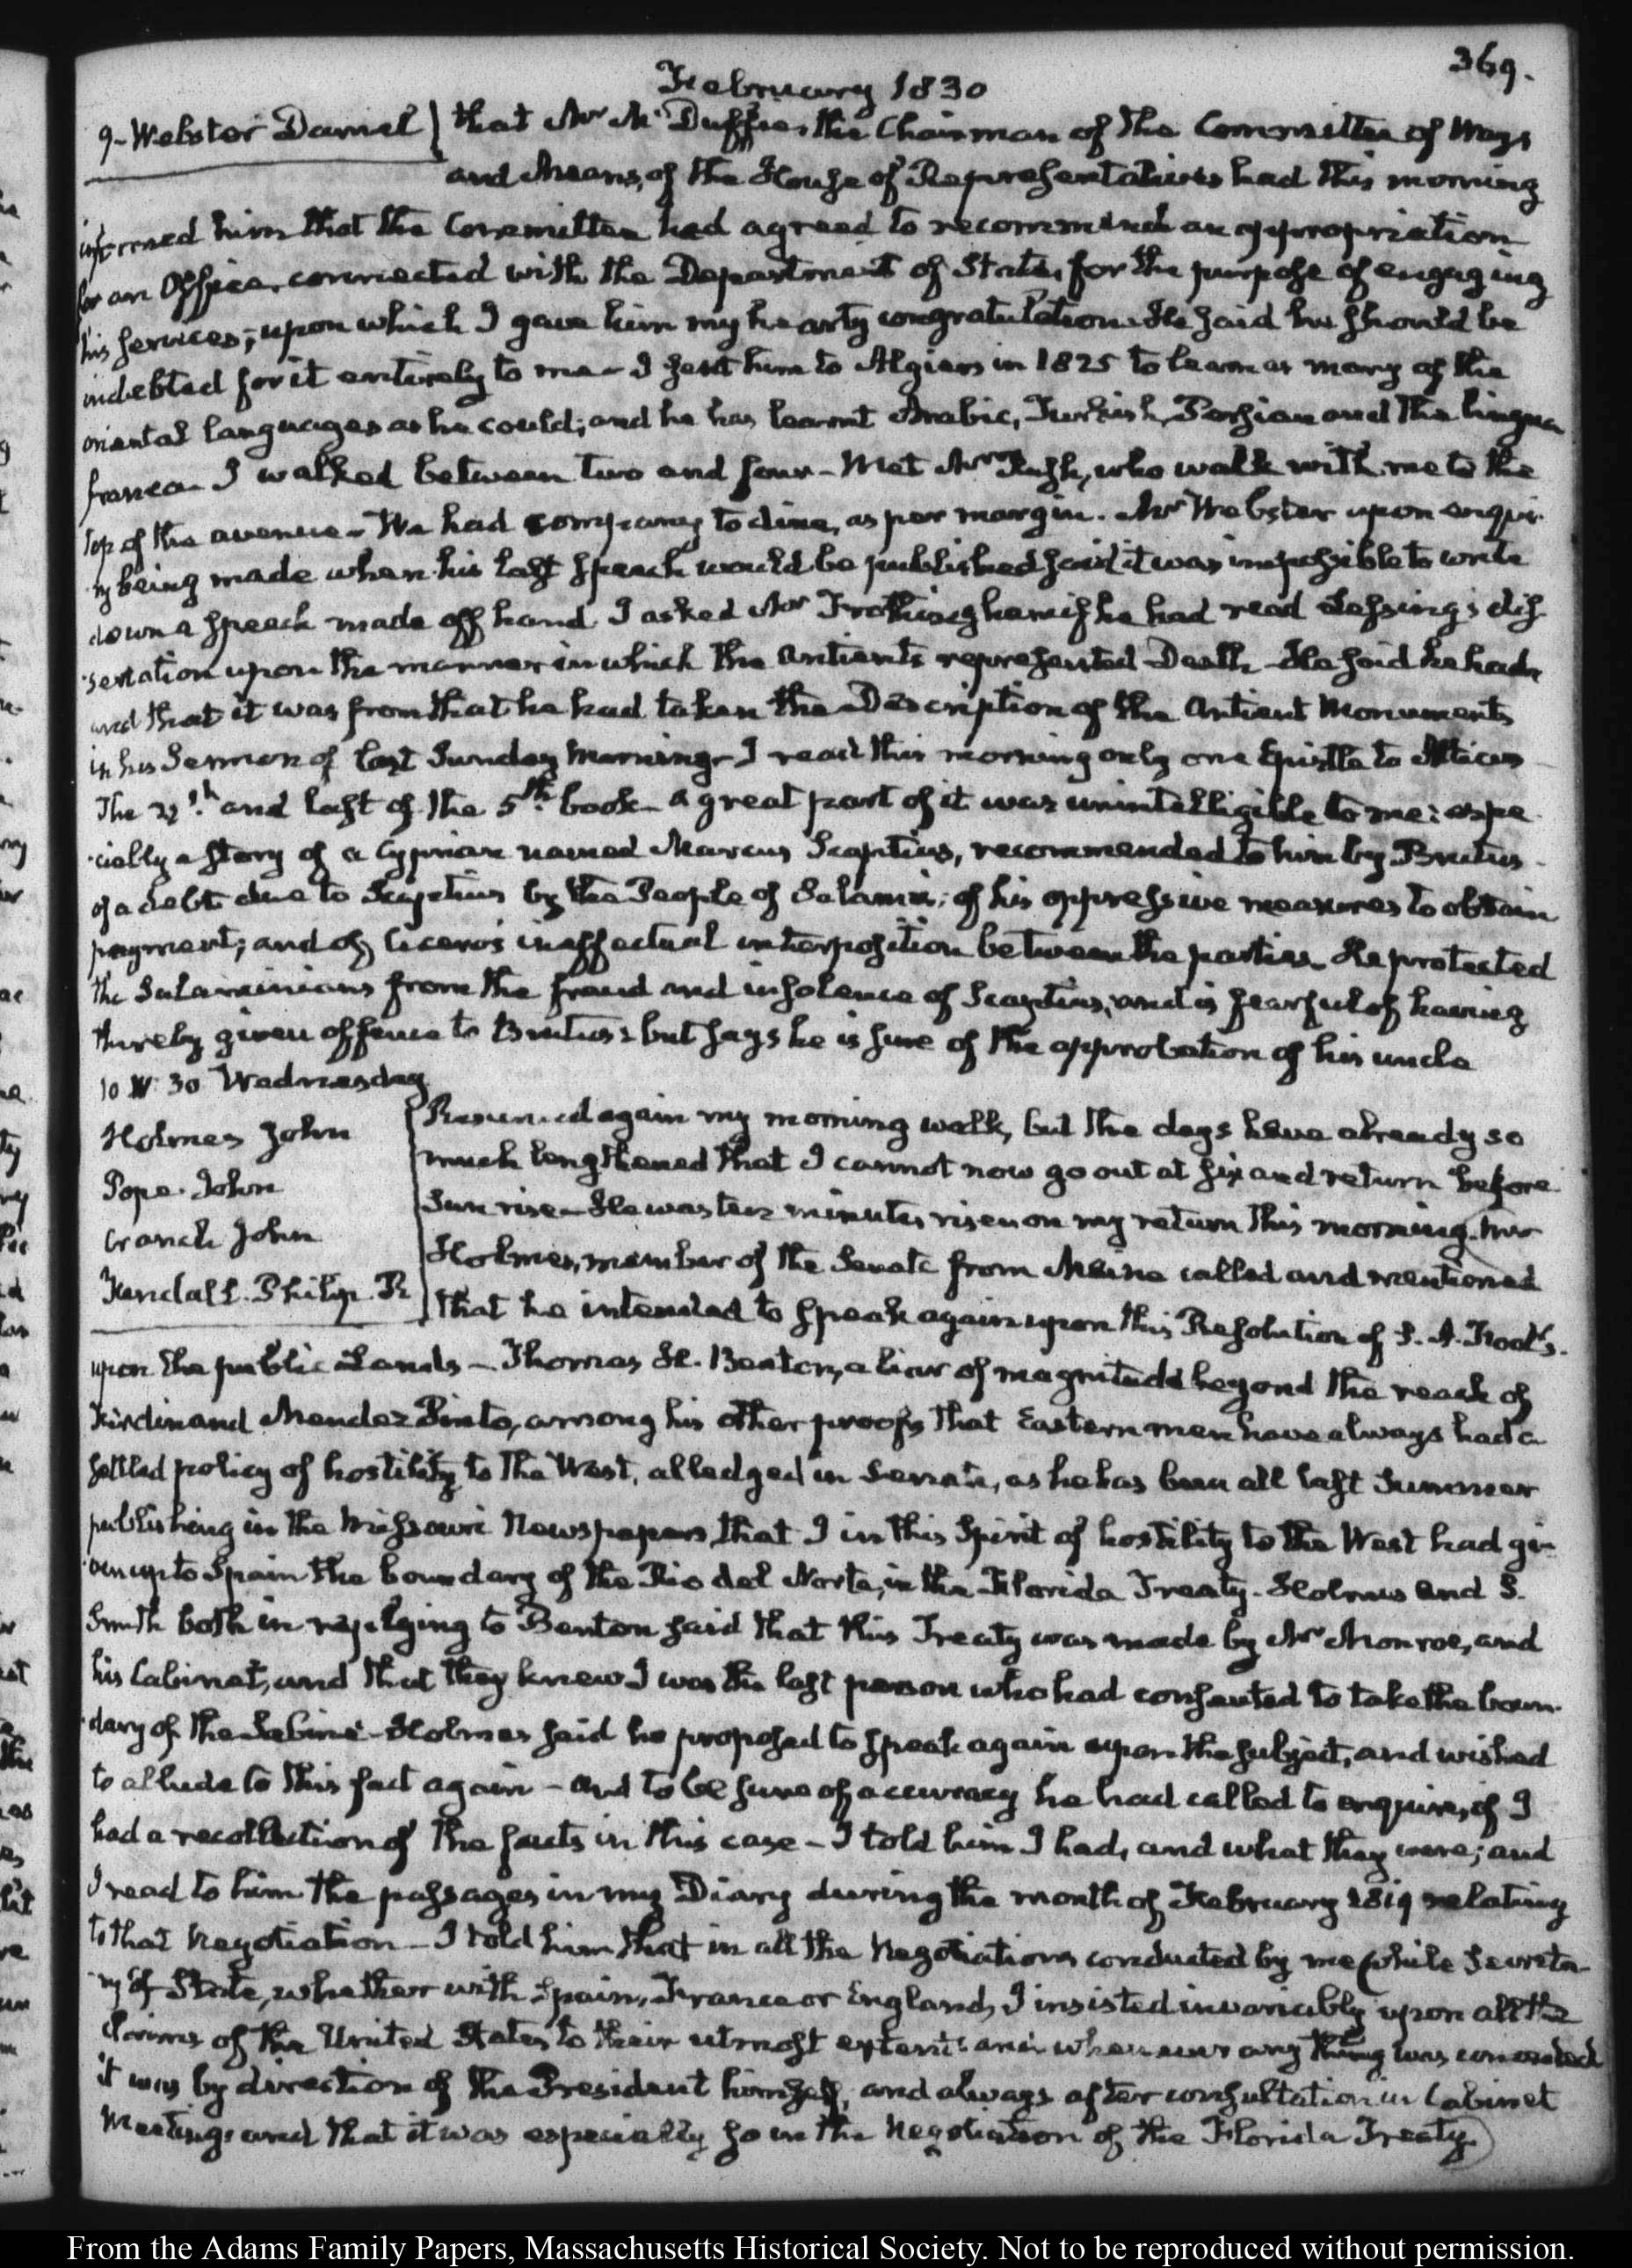 369.
February 1830
9. Webster Daniel
that Mr McDuffie, the Chairman of the Committee of Ways
and Means, of the House of Representatives had this morning
informed him that the Committee had agreed to recommend an appropriation
for an Office, connected with the Department of State, for the purpose of engaging
his services; upon which I gave him my hearty congratulation. He said he should be
indebted for it entirely to me – I sent him to Algiers in 1825 to learn as many of the
oriental languages as he could; and he has learnt Arabic, Turkish, Persian and the lingua
franca – I walked between two and four – Met Mr Rush, who walk with me to the
top of the avenue – We had company to dine, as per margin. Mr Webster upon enqui-
ry being made when his last Speech would be published said it was impossible to write
down a speech made off hand. I asked Mr Frothingham if he had read Lessing's dis-
sertation upon the manner in which the antients represented Death – He said he had,
and that it was from that he had taken the Description of the antient Monuments
in his Sermon of last Sunday Morning – I read this morning only one Epistle to Atticus
The 21st. and last of the 5th. book – a great part of it was unintelligible to me: espe-
cially a story of a Cyprian named Marcus Scaptius, recommended to him by Brutus –
of a debt due to Scaptius by the People of Salamis; of his oppressive measures to obtain
payment; and of Cicero's ineffectual interposition between the parties – He protected
the Salaminians from the fraud and insolence of Scaptius, and is fearful of having
thereby given offence to Brutus: but says he is sure of the approbation of his uncle
10 IV: 30 Wednesday
Holmes John
Pope. John
Cranch John
Fendall. Philip. R
Resumed again my morning walk, but the days have already so
much lengthened that I cannot now go out at six and return before
Sun rise – He was ten minutes risen on my return this morning. Mr
Holmes, member of the Senate from Maine called and mentioned
that he intended to speak again upon this Resolution of S. A. Foot's.
upon the public Lands – Thomas H. Benton, a liar of magnitude beyond the reach of
Ferdinand Mendez Pinto, among his other proofs that Eastern men have always had a
settled policy of hostility to the West, alledged in Senate, as he has been all last Summer
publishing in the Missouri Newspapers, that I in this Spirit of hostility to the West had gi-
ven up to Spain the boundary of the Rio del Norte, in the Florida Treaty – Holmes and S.
Smith both in replying to Benton said that this Treaty was made by Mr Monroe, and
his Cabinet, and that they knew I was the last person who had consented to take the boun-
dary of the Sabine – Holmes said he proposed to speak again upon the subject, and wished
to allude to this fact again – and to be sure of accuracy he had called to enquire, if I
had a recollection of the facts in this case – I told him I had, and what they were; and
I read to him the passages in my Diary during the month of February 1819 relating
to that Negotiation – I told him that in all the Negotiations conducted by me while Secreta-
ry of State, whether with Spain, France or England, I insisted invariably upon all the
claims of the United States to their utmost extent: and whenever any thing was conceded
it was by direction of the President himself, and always after consultation in Cabinet
Meeting: and that it was especially so in the Negotiation of the Florida Treaty
From the Adams Family Papers, Massachusetts Historical Society. Not to be reproduced without permission.